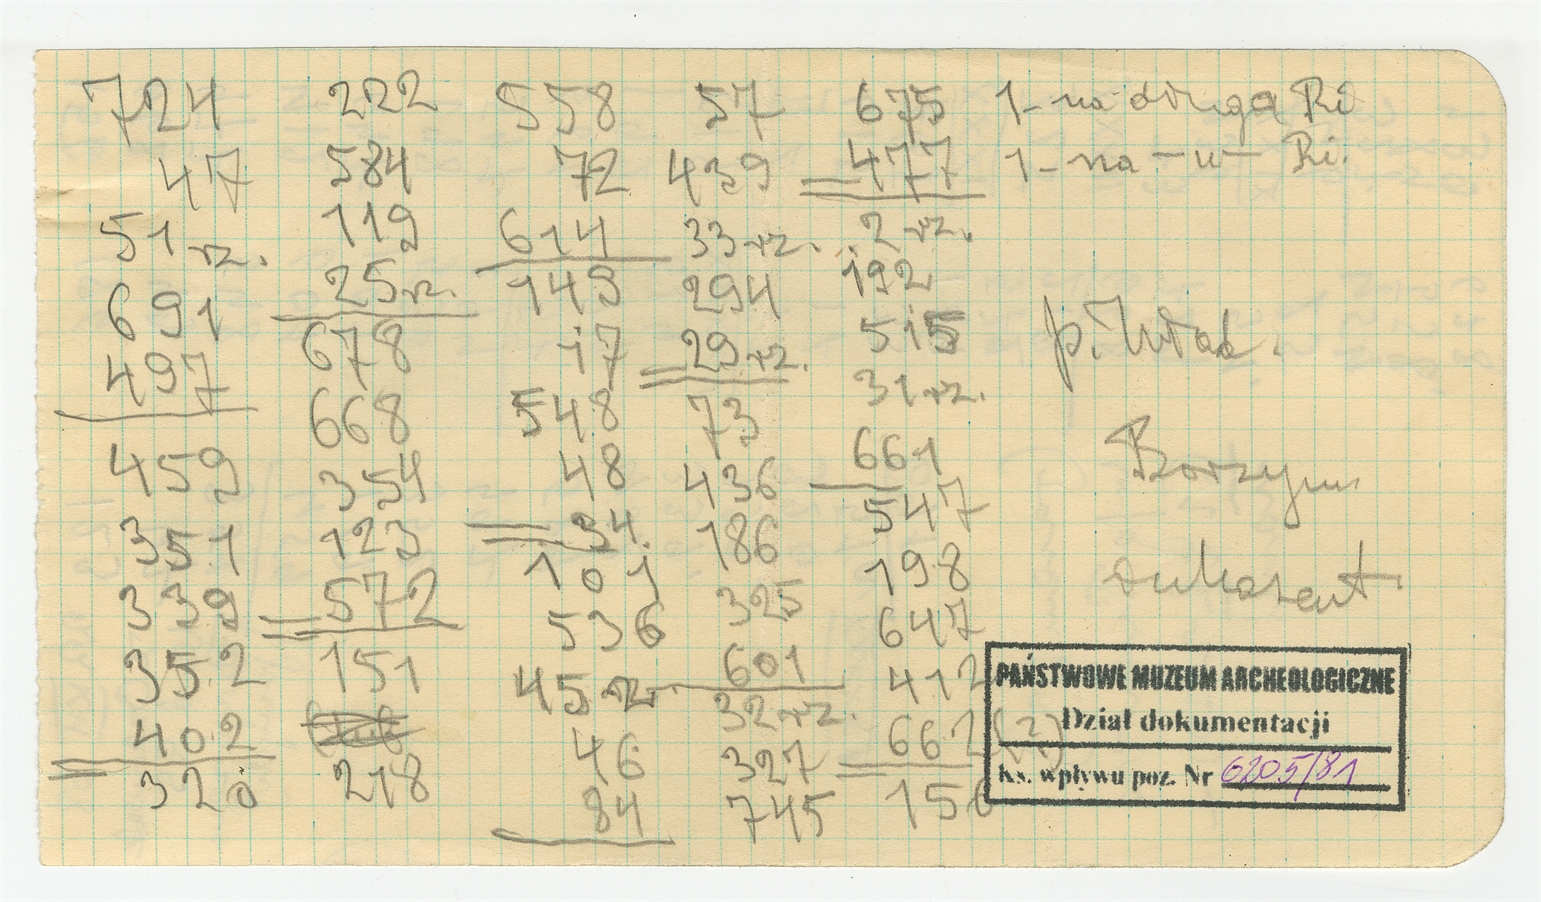 724
47
51 rz.
691
497
459
351
339
352
402
320
222
584
119
25 rz.
678
668
354
123
572
151
218
558
72
614
149
17
548
48
34.
101
536
452
46
84
57
439
33 rz.
294
29 rz.
73
436
186
325
601
32 rz.
327
745
675
477
2 rz.
192
515
31 rz.
661
547
198
647
412
662 (?)
156
1 - na drugą Ri
1 - na - u - Ri.
p. Wład.
Borzym
PAŃSTWOWE MUZEUM ARCHEOLOGICZNE
Dział dokumentacji
Ks. wpływu poz. Nr 6205/81